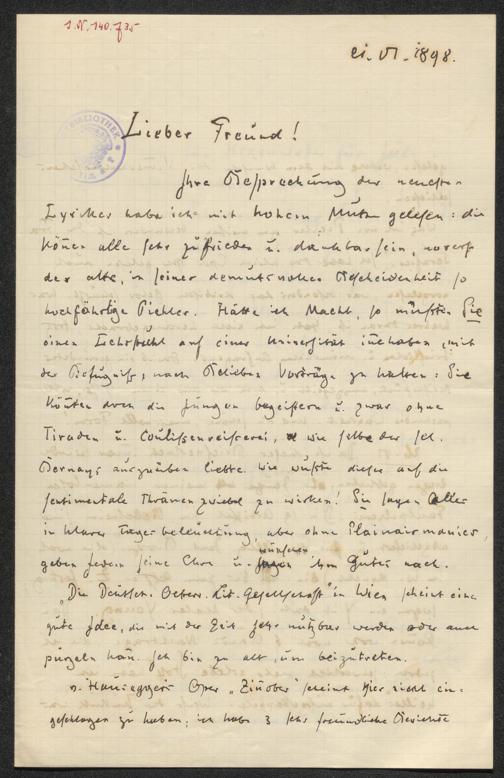 I.N. 140.735
21. VI. 1898.
BIBLIOTHEK
WIEN
Lieber Freund!
Ihre Besprechung der neuesten
Lyriker habe ich mit hohem gelesen: die
können alle sehr zufrieden u. dankbar sein, voraus
der alte, in seiner demutsvollen Bescheidenheit so
hochfährtige Pichler. Hätte ich Macht, so müssten Sie
einen Lehrstuhl auf einer Universität innehaben, mit
der Befugniss, nach Belieben Vorträge zu halten: Sie
könten doch die Jungen begeistern u. zwar ohne
Tiraden u. Coulissenreisserei, wie selbe der sel.
Bernays auszuüben liebte. Wie wusste dieser auf die
sentimentale Thränenzwiebel zu wirken! Sie sagen Alles
in klarer Tagesbeleuchtung aber ohne Plainairmanier,
geben Jedem seine Ehre u. wünschen ihm Gutes nach.
„Die Deutsch. Oesterr. Lit. Gesellschaft" in Wien scheint eine
gute Idee, die mit der Zeit sehr nutzbar werden oder auch
purzeln kan. Ich bin zu alt, um beizutreten.
v. Hauseggers Oper „Zinober" scheint hier nicht ein-
geschlagen zu haben; ich habe 3 sehr freundliche Berichte